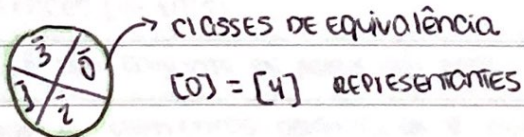 3̄ 0̄ → CLASSES DE EQUIVALÊNCIA
1̄ 2̄ [0] = [4] REPRESENTANTES